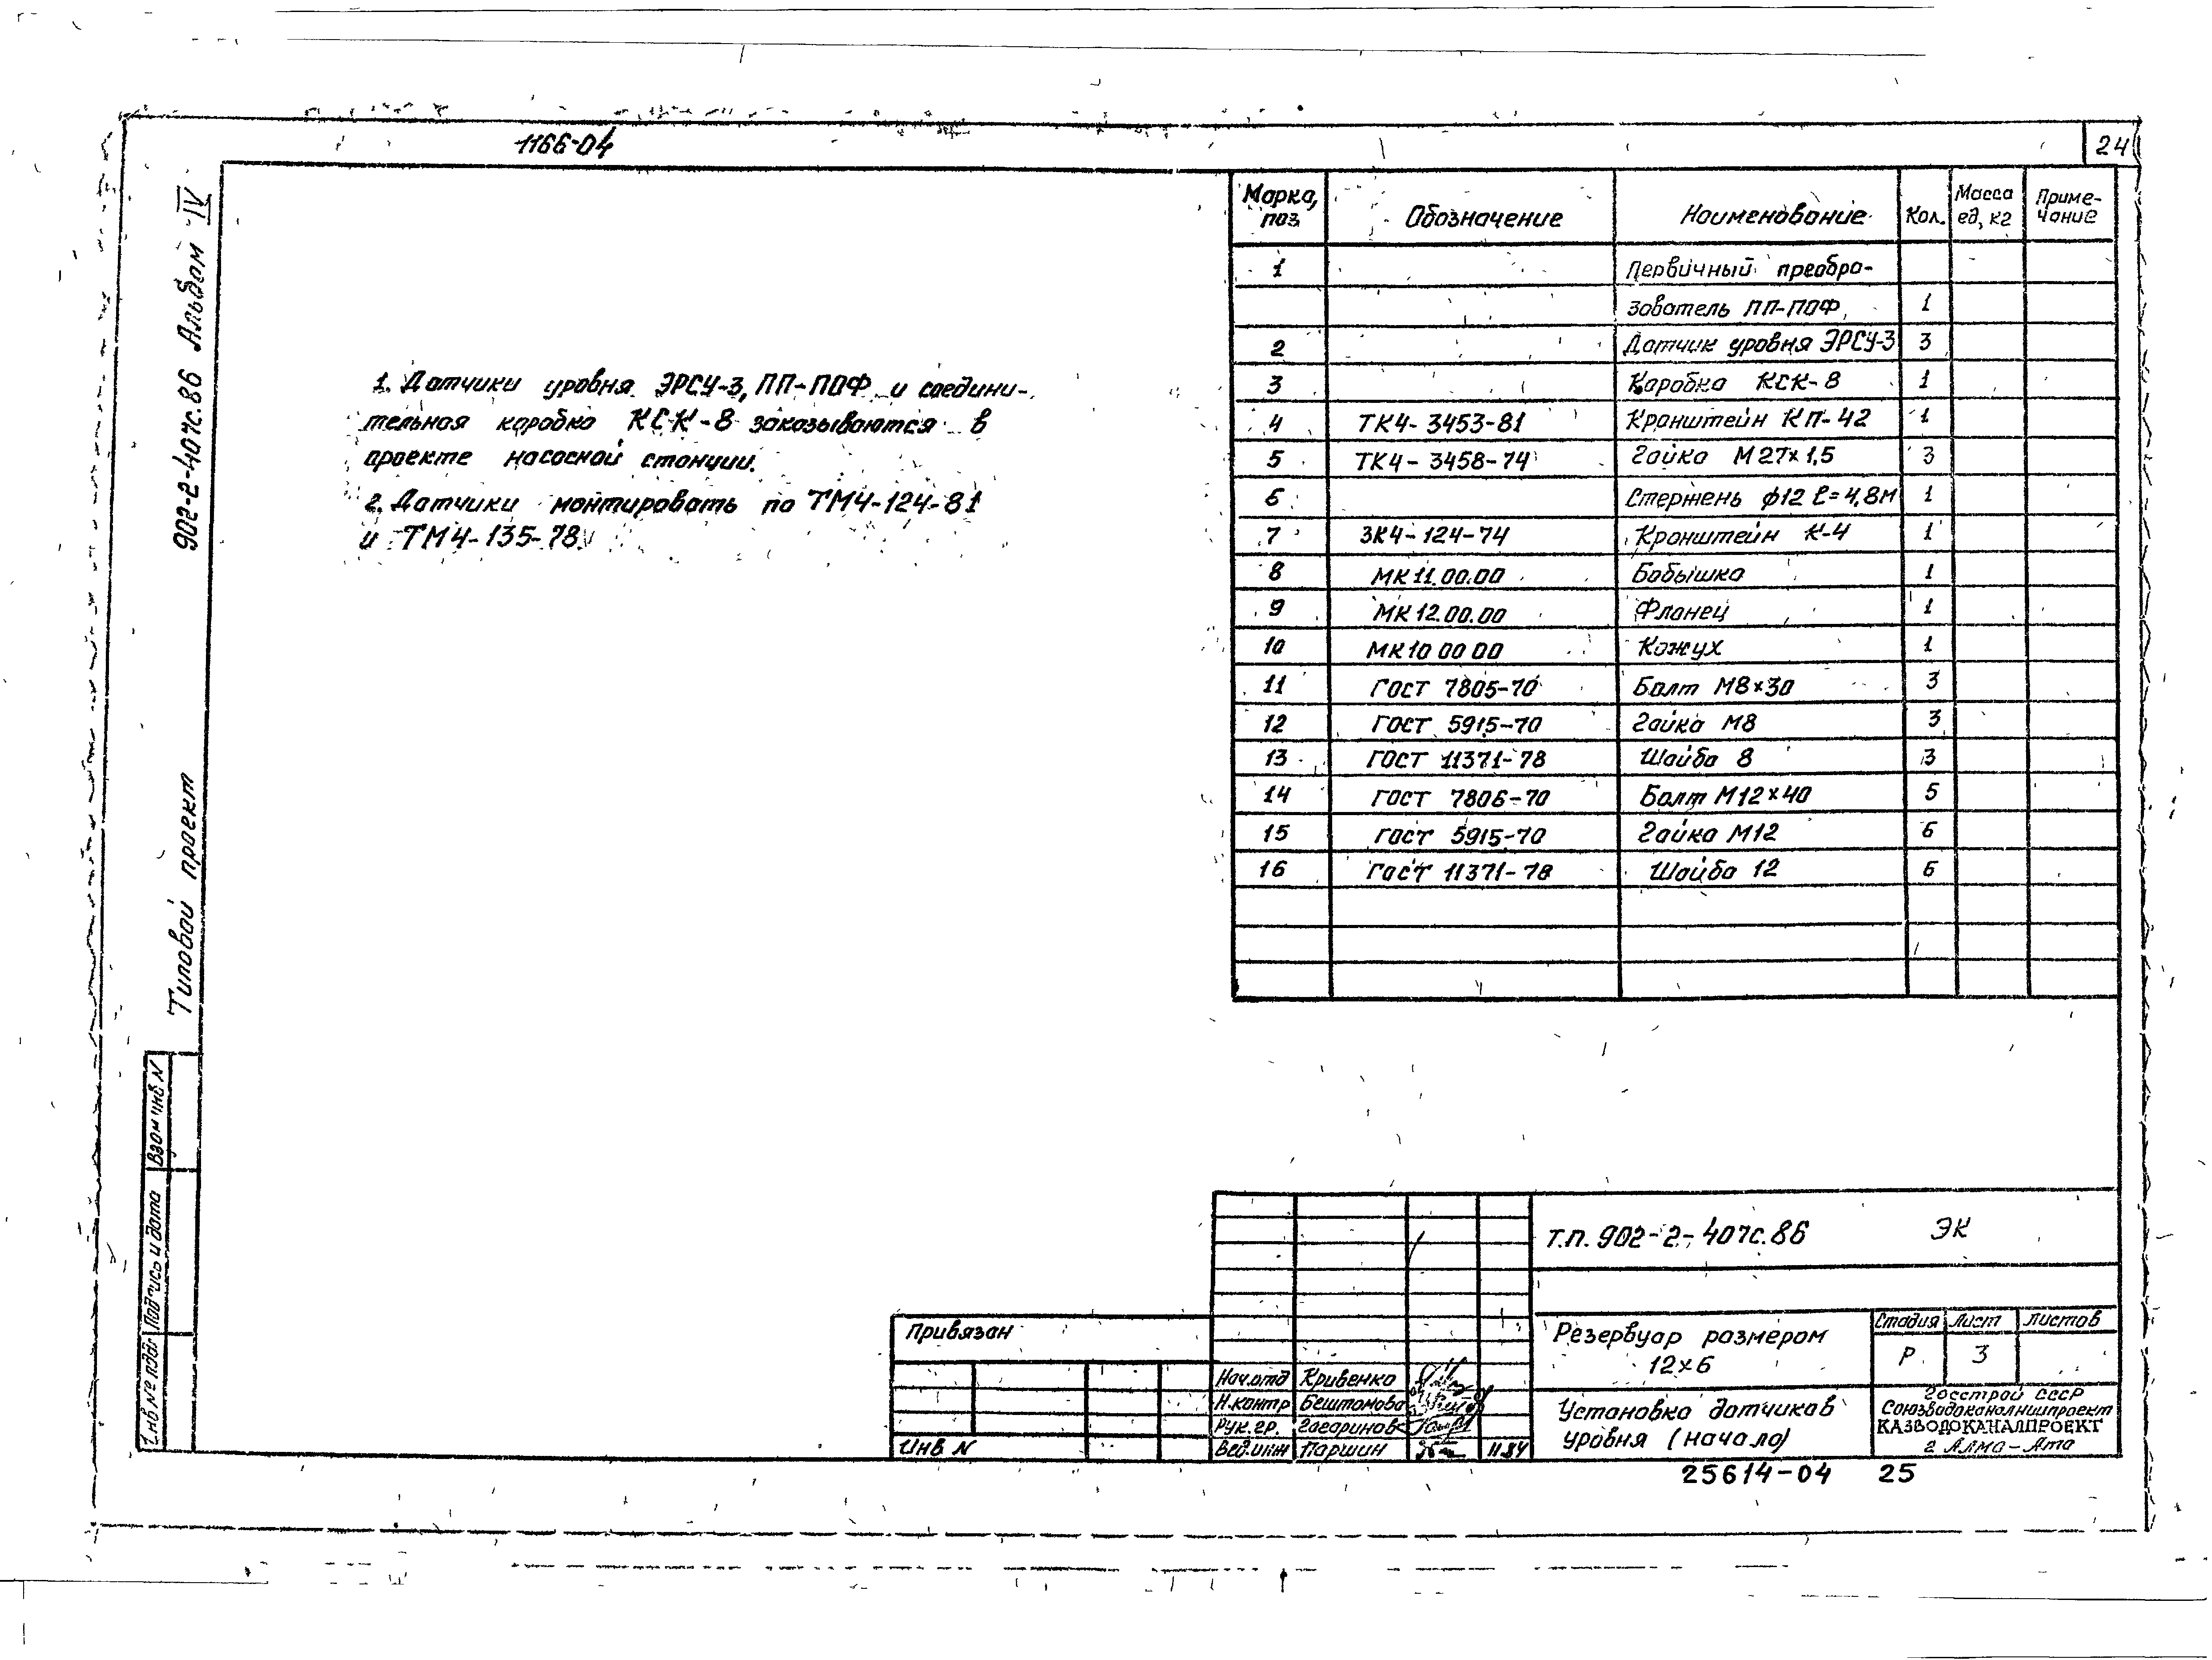 1166-04
24
Типовой проект 902-2-407с.86 Альбом IV
1. Датчики уровня ЭРСУ-3, ПП-ПОФ и соедини-
тельная коробка КСК-8 заказываются в
проекте насосной станции.
2. Датчики монтировать по ТМ4-124-81
и ТМ4-135-78.
Марка, поз. Обозначение Наименование Кол. Масса ед, кг Приме-чание
1 Первичный преобра-
зователь ПП-ПОФ 1
2 Датчик уровня ЭРСУ-3 3
3 Коробка КСК-8 1
4 ТК4-3453-81 Кронштейн КП-42 1
5 ТК4-3458-74 Гайка М27×1,5 3
6 Стержень ф12 ℓ=4,8м 1
7 ЗК4-124-74 Кронштейн К-4 1
8 МК11.00.00 Бобышка 1
9 МК12.00.00 Фланец 1
10 МК10 00 00 Кожух 1
11 ГОСТ 7805-70 Болт М8×30 3
12 ГОСТ 5915-70 Гайка М8 3
13 ГОСТ 11371-78 Шайба 8 3
14 ГОСТ 7806-70 Болт М12×40 5
15 ГОСТ 5915-70 Гайка М12 6
16 ГОСТ 11371-78 Шайба 12 6
Взам инв N
Подпись и дата
Инв № подл
Т.П. 902-2-407с.86 ЭК
Привязан
Инв N
Нач.отд Кривенко
Н.контр Бештамова
Рук.гр. Гагаринов
Вед.инж Паршин 11.84
Резервуар размером
12×6
Стадия Лист Листов
Р 3
Установка датчиков
уровня (начало)
Госстрой СССР
Союзводоканалниипроект
КАЗВОДОКАНАЛПРОЕКТ
г Алма-Ата
25614-04 25